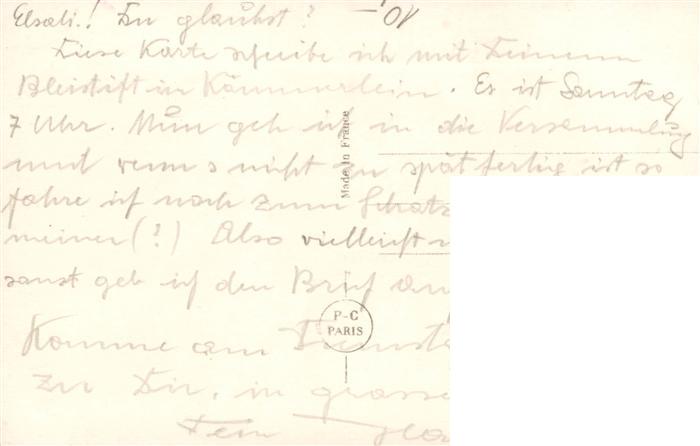 10.-
Elsali! Du glaubst?
Diese Karte schreibe ich mit Deinem
Bleistift im Kämmerlein. Es ist Sonntag
7 Uhr. Nun geh ich in die Versammlung
und wenn's nicht zu spät fertig ist so
fahre ich noch zum Schatz
meiner(?) Also vielleicht
sonst geb ich den Brief
Komme am
zu Dir, in grosse
Dein
Made in France
P-C
PARIS